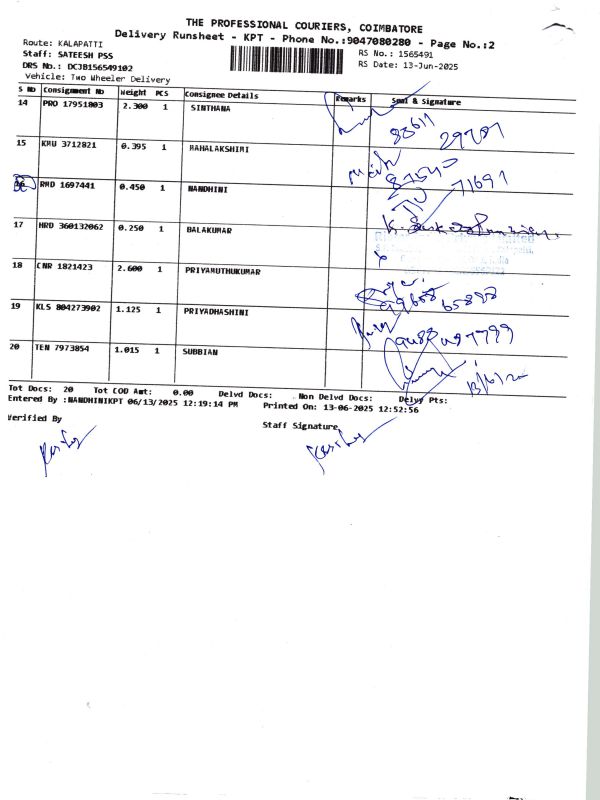 THE PROFESSIONAL COURIERS, COIMBATORE
Delivery Runsheet - KPT - Phone No.:9047080280 - Page No.:2
Route: KALAPATTI
RS No.: 1565491
Staff: SATEESH PSS
RS Date: 13-Jun-2025
DRS No.: DCJB156549102
Vehicle: Two Wheeler Delivery
S No Consignment No Weight PCS Consignee Details Remarks Seal & Signature
14 PRO 17951803 2.300 1 SINTHANA
88611 29787
15 KMU 3712821 0.395 1 MAHALAKSHIMI
16 RMD 1697441 0.450 1 NANDHINI
71691
17 HRD 360132062 0.250 1 BALAKUMAR
18 CNR 1821423 2.600 1 PRIYAMUTHUKUMAR
65898
19 KLS 804273902 1.125 1 PRIYADHASHINI
20 TEN 7973854 1.015 1 SUBBIAN
Tot Docs: 20 Tot COD Amt: 0.00 Delvd Docs: Non Delvd Docs: Delvy Pts:
Entered By :NANDHINIKPT 06/13/2025 12:19:14 PM Printed On: 13-06-2025 12:52:56
Verified By Staff Signature